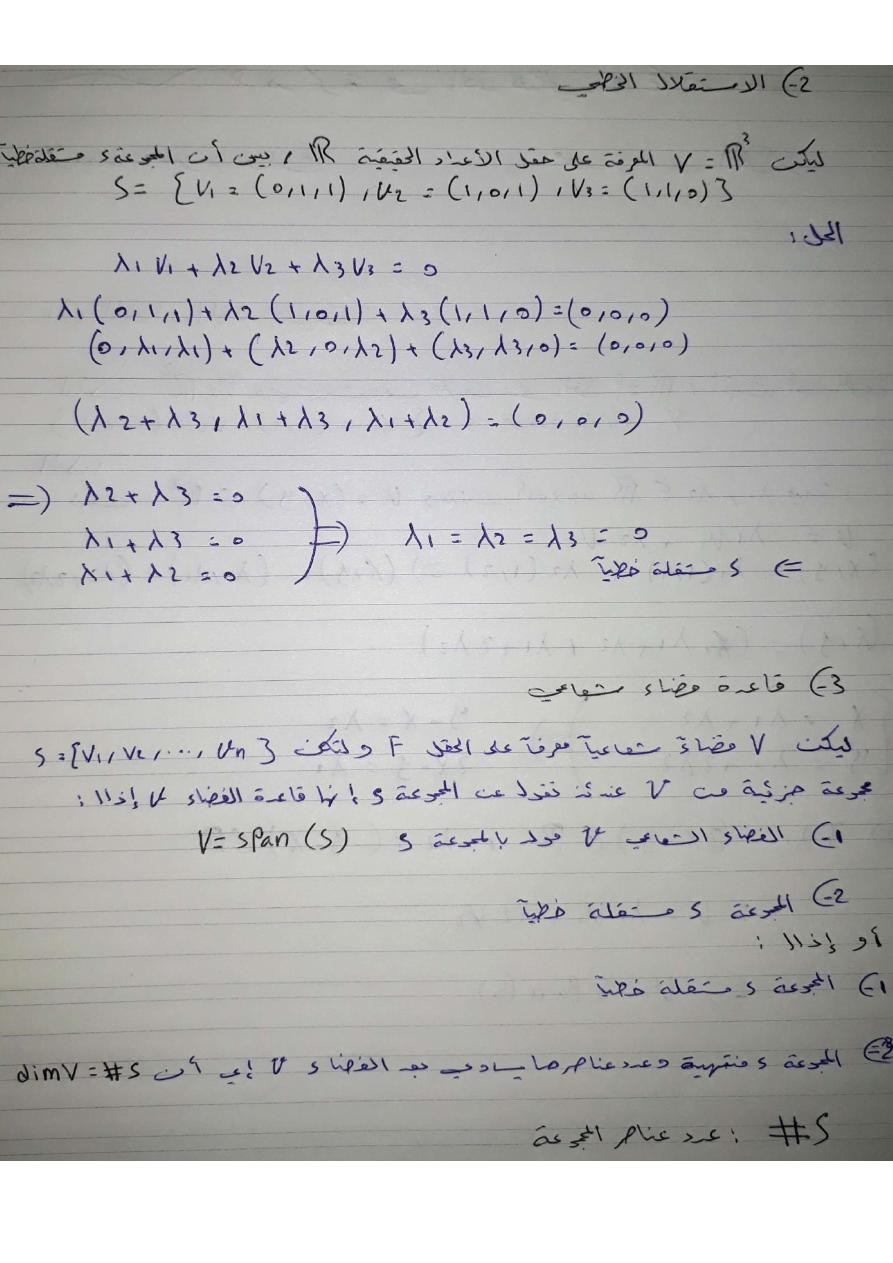 2-) الاستقلال الخطي
ليكن V = ℝ³ المعرفة على حقل الأعداد الحقيقية ℝ ، بين أن المجموعة S مستقلة خطياً
S = {V1 = (0,1,1) , V2 = (1,0,1) , V3 = (1,1,0)}
الحل :
λ1 V1 + λ2 V2 + λ3 V3 = 0
λ1 (0,1,1) + λ2 (1,0,1) + λ3 (1,1,0) = (0,0,0)
(0, λ1, λ1) + (λ2, 0, λ2) + (λ3, λ3, 0) = (0,0,0)
(λ2 + λ3 , λ1 + λ3 , λ1 + λ2) = (0,0,0)
=> λ2 + λ3 = 0
λ1 + λ3 = 0 } => λ1 = λ2 = λ3 = 0
λ1 + λ2 = 0 <= S مستقلة خطياً
3-) قاعدة فضاء شعاعي
ليكن V فضاءً شعاعياً معرفاً على الحقل F ولتكن S = {V1, V2, ..., Vn}
مجموعة جزئية من V عندئذ نقول عن المجموعة S إنها قاعدة الفضاء V إذا :
1-) الفضاء الشعاعي V مولد بالمجموعة S V = span (S)
2-) المجموعة S مستقلة خطياً
أو إذا :
1-) المجموعة S مستقلة خطياً
2-) المجموعة S منتهية وعدد عناصرها يساوي بعد الفضاء V إي أن dimV = #S
#S : عدد عناصر المجموعة